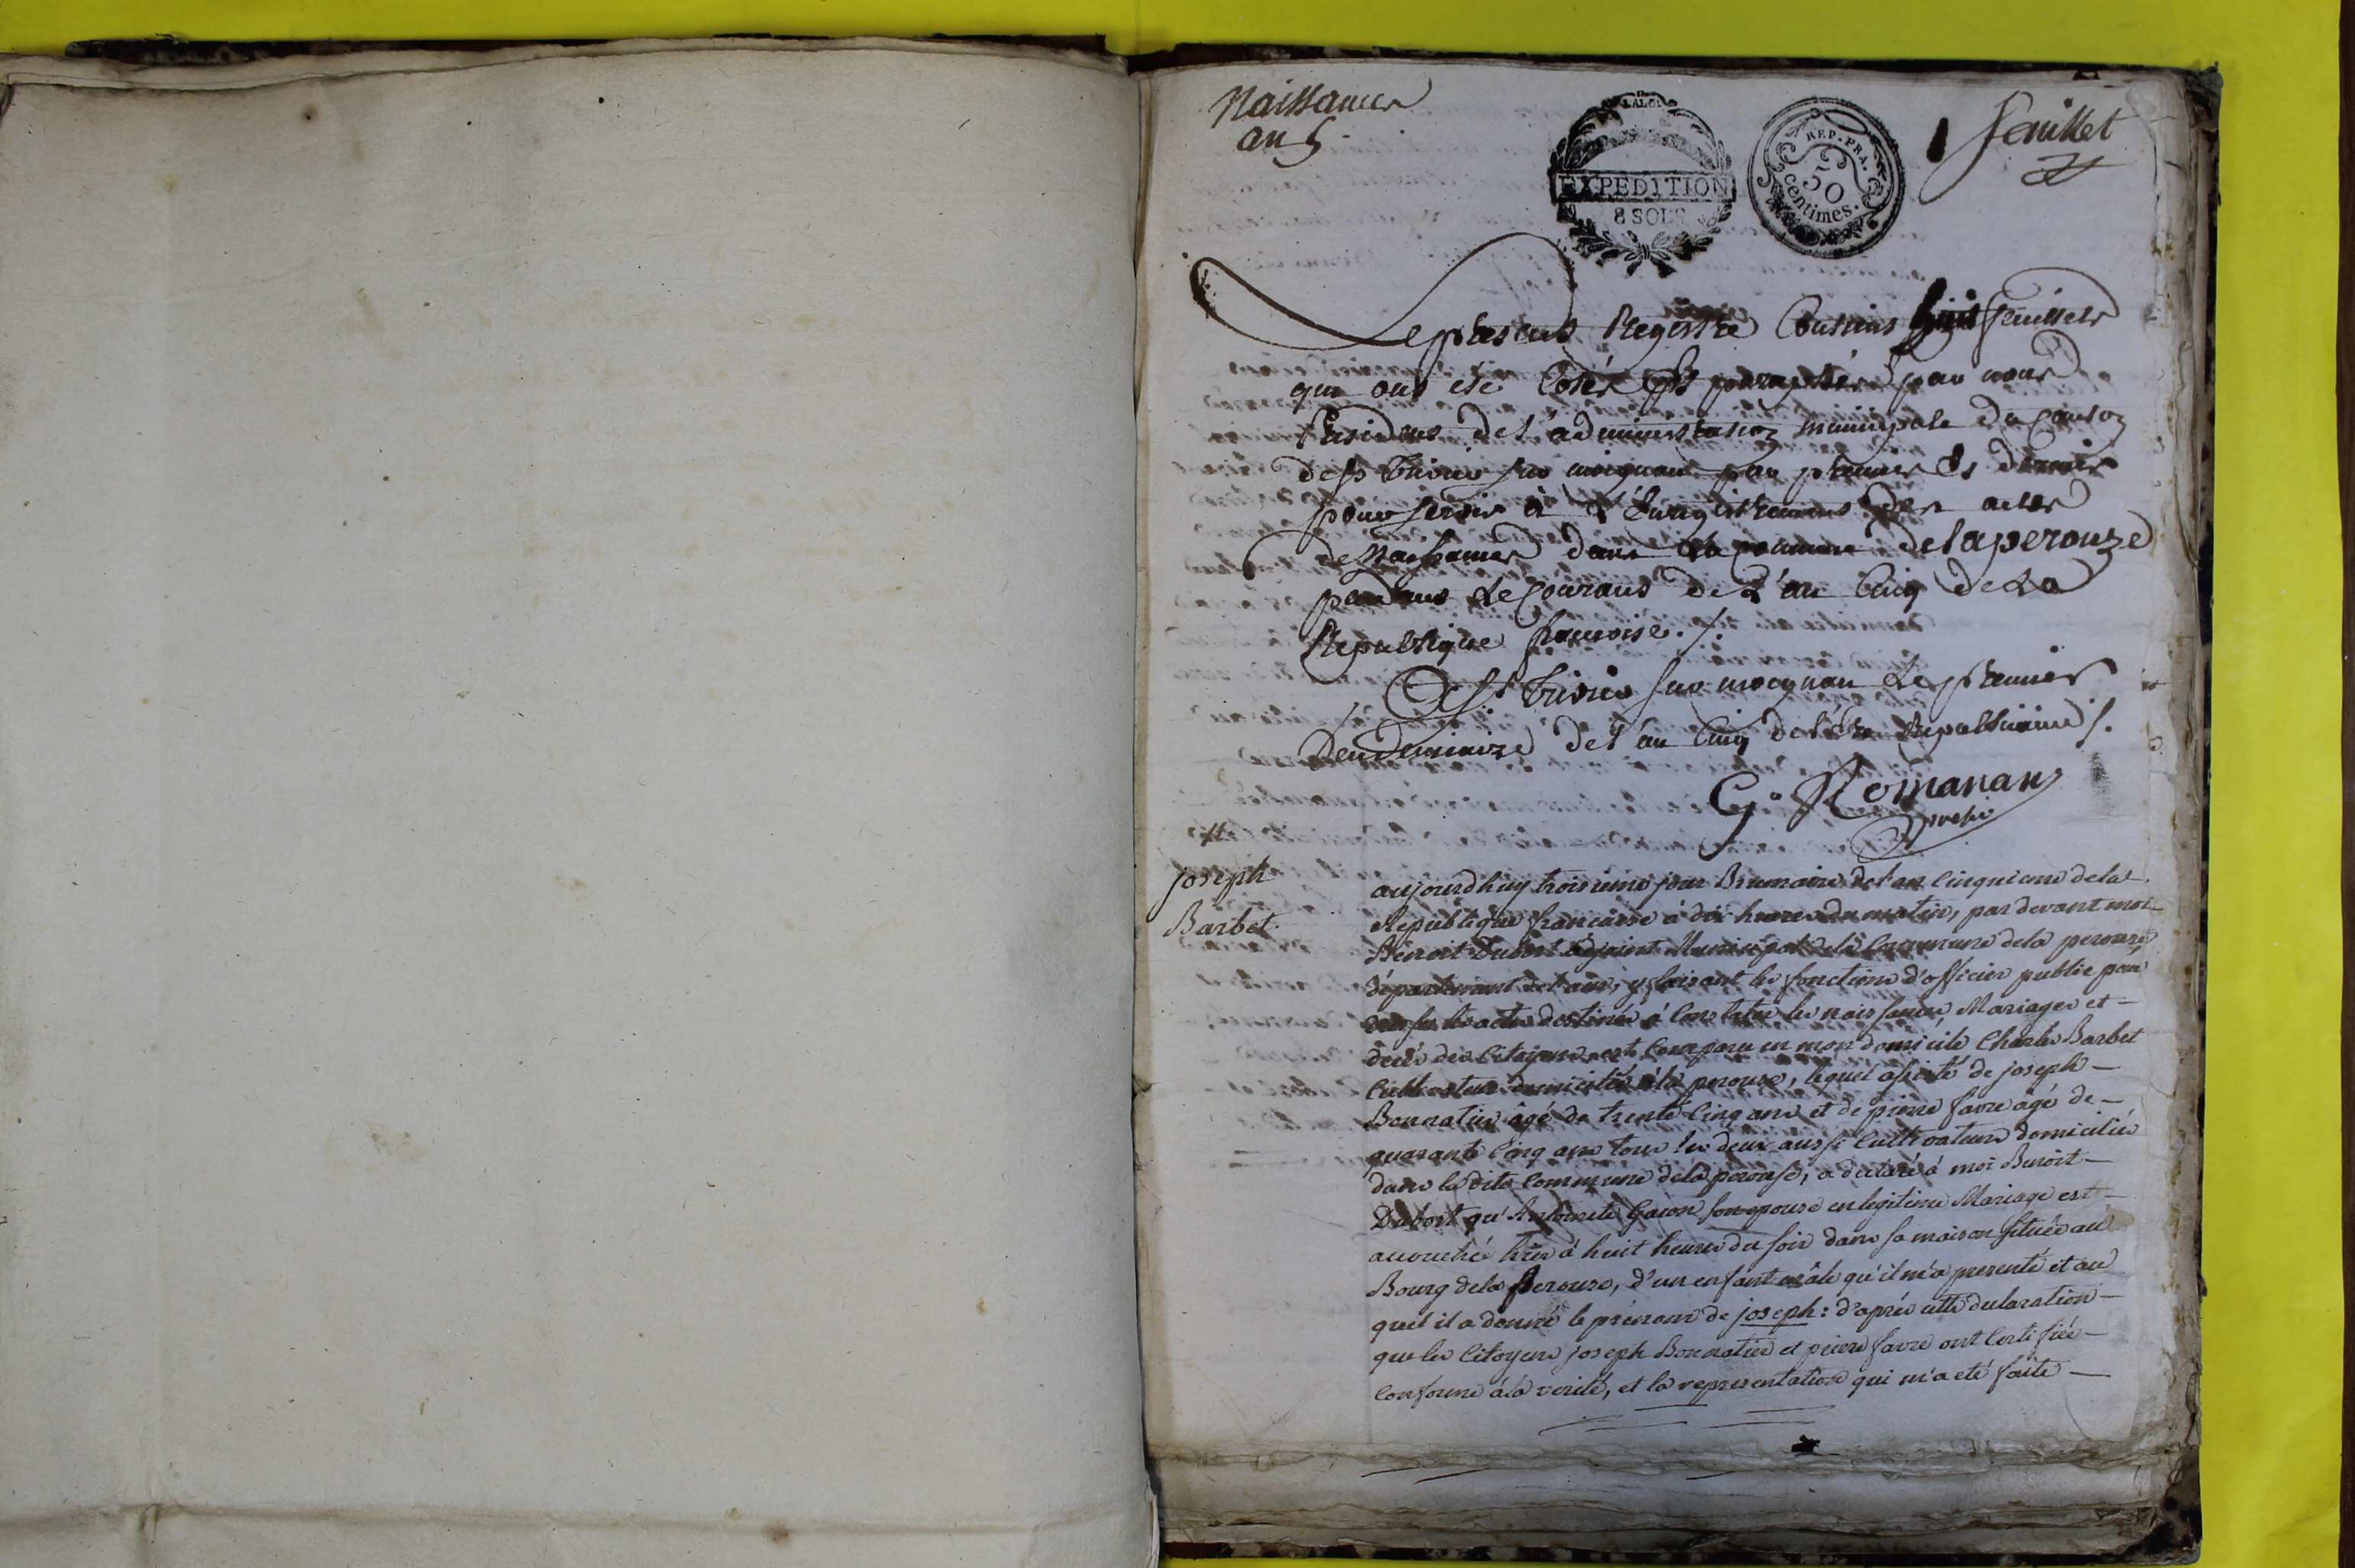 Naissances
an 5
LA LOI
EXPEDITION
8 SOLS
REP. FRA.
50
centimes.
1 feuillet
Le present Registre Contiens huit feuillets
qui ont eté Cotés Et paraphés par nous
President de l'administration municipale du Canton
de St Trivier sur moignans par premier Et dernier
pour servir à L'Enregistrement des actes
de Naissances dans la commune de laperouze
pendant Le Courans de L'an Cinq de La
Republique francoise ./.
A St. Trivier sur moignan Le premier
Vendemiaire de l'an Cinq de l'ére Republicaine ./.
G. Romanans
presid
Joseph
Barbet
aujourdhuy troisieme jour Brumaire de l'an Cinquieme de la
Republique francaise à dix heures du matin, par devant moi
Benoit Dubost adjoint Municipal de la Commune de la perouse
departement de l'ain, y faisant les fonctions d'officier public pour
les actes destinés à Constater les naissances, Mariages et
decès des Citoyens est Comparu en mon domicile Charles Barbet
Cultivateur domicilié à la perouse, lequel assisté de joseph
Bonnatier âgé de trente Cinq ans et de pierre favre agé de
quarante Cinq ans tous les deux aussi Cultivateurs domiciliés
dans la dite Commune de la perouse, a declaré à moi Benoit
Dubost qu'Antoinette Gacon son epouse en legitime Mariage est
accouché hier à huit heures du soir dans sa maison située au
Bourg de la Perouse, d'un enfant mâle qu'il m'a presenté et au
quel il a donné le prénom de joseph : d'après cette declaration
que les Citoyens joseph Bonnatier et pierre favre ont Certifiée
Conforme à la verité, et la representation qui m'a eté faite